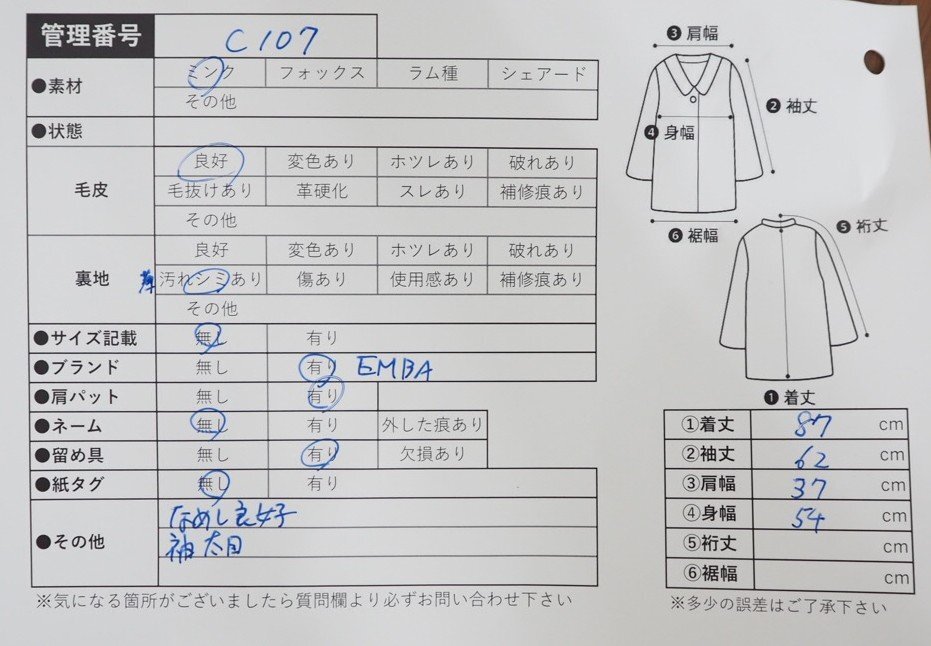 管理番号 C107
●素材 ミンク フォックス ラム種 シェアード
その他
●状態
毛皮 良好 変色あり ホツレあり 破れあり
毛抜けあり 革硬化 スレあり 補修痕あり
その他
裏地 良好 変色あり ホツレあり 破れあり
汚れシミあり 傷あり 使用感あり 補修痕あり
その他
●サイズ記載 無し 有り
●ブランド 無し 有り EMBA
●肩パット 無し 有り
●ネーム 無し 有り 外した痕あり
●留め具 無し 有り 欠損あり
●紙タグ 無し 有り
●その他 なめし良好
袖太目
※気になる箇所がございましたら質問欄より必ずお問い合わせ下さい
❸肩幅
❷袖丈
❹身幅
❻裾幅
❺裄丈
❶着丈
①着丈 87 cm
②袖丈 62 cm
③肩幅 37 cm
④身幅 54 cm
⑤裄丈 cm
⑥裾幅 cm
※多少の誤差はご了承下さい